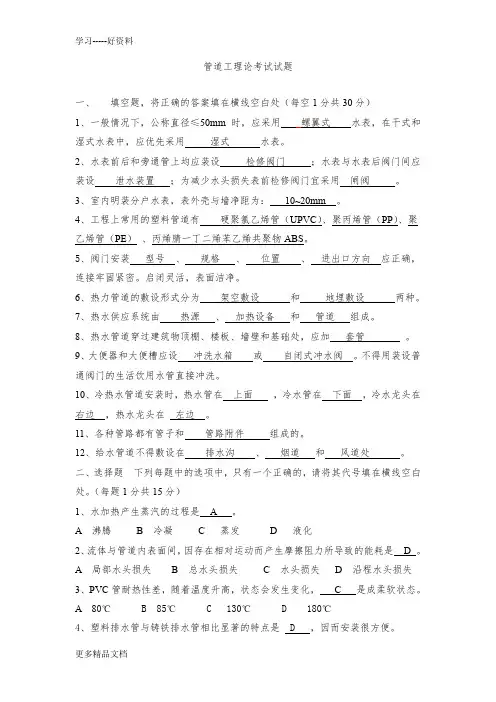 学习-----好资料
管道工理论考试试题
一、 填空题，将正确的答案填在横线空白处（每空1分共30分）
1、一般情况下，公称直径≤50mm 时，应采用 螺翼式 水表，在干式和
湿式水表中，应优先采用 湿式 水表。
2、水表前后和旁通管上均应装设 检修阀门 ；水表与水表后阀门间应
装设 泄水装置 ；为减少水头损失表前检修阀门宜采用 闸阀 。
3、室内明装分户水表，表外壳与墙净距为： 10~20mm 。
4、工程上常用的塑料管道有 硬聚氯乙烯管（UPVC）、聚丙烯管（PP）、聚
乙烯管（PE） 、丙烯腈一丁二烯苯乙烯共聚物ABS。
5、阀门安装 型号 、 规格 、 位置 、 进出口方向 应正确，
连接牢固紧密。启闭灵活，表面洁净。
6、热力管道的敷设形式分为 架空敷设 和 地埋敷设 两种。
7、热水供应系统由 热源 、 加热设备 和 管道 组成。
8、热水管道穿过建筑物顶棚、楼板、墙壁和基础处，应加 套管 。
9、大便器和大便槽应设 冲洗水箱 或 自闭式冲水阀 。不得用装设普
通阀门的生活饮用水管直接冲洗。
10、冷热水管道安装时，热水管在 上面 ，冷水管在 下面 ，冷水龙头在
右边 ，热水龙头在 左边 。
11、各种管路都有管子和 管路附件 组成的。
12、给水管道不得敷设在 排水沟 、 烟道 和 风道处 。
二、选择题 下列每题中的选项中，只有一个正确的，请将其代号填在横线空白
处。（每题1分共15分）
1、水加热产生蒸汽的过程是 A 。
A 沸腾 B 冷凝 C 蒸发 D 液化
2、流体与管道内表面间，因存在相对运动而产生摩擦阻力所导致的能耗是 D 。
A 局部水头损失 B 总水头损失 C 水头损失 D 沿程水头损失
3、PVC管耐热性差，随着温度升高，状态会发生变化， C 是成柔软状态。
A 80℃ B 85℃ C 130℃ D 180℃
4、塑料排水管与铸铁排水管相比显著的特点是 D ，因而安装很方便。
更多精品文档